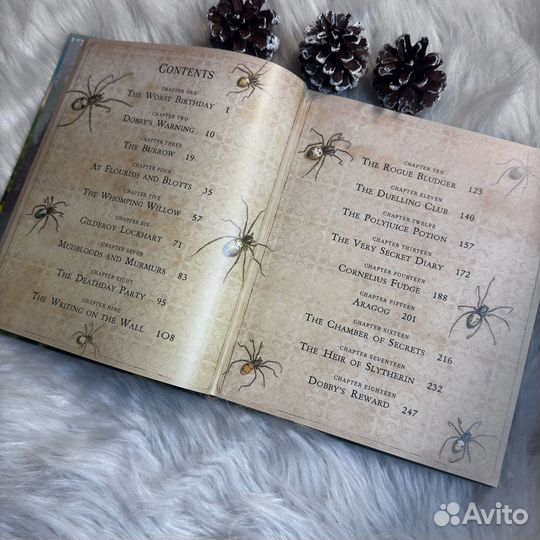 Contents
CHAPTER ONE
The Worst Birthday 1
CHAPTER TWO
Dobby's Warning 10
CHAPTER THREE
The Burrow 19
CHAPTER FOUR
At Flourish and Blotts 35
CHAPTER FIVE
The Whomping Willow 57
CHAPTER SIX
Gilderoy Lockhart 71
CHAPTER SEVEN
Mudbloods and Murmurs 83
CHAPTER EIGHT
The Deathday Party 95
CHAPTER NINE
The Writing on the Wall 108
CHAPTER TEN
The Rogue Bludger 123
CHAPTER ELEVEN
The Duelling Club 140
CHAPTER TWELVE
The Polyjuice Potion 157
CHAPTER THIRTEEN
The Very Secret Diary 172
CHAPTER FOURTEEN
Cornelius Fudge 188
CHAPTER FIFTEEN
Aragog 201
CHAPTER SIXTEEN
The Chamber of Secrets 216
CHAPTER SEVENTEEN
The Heir of Slytherin 232
CHAPTER EIGHTEEN
Dobby's Reward 247
Avito